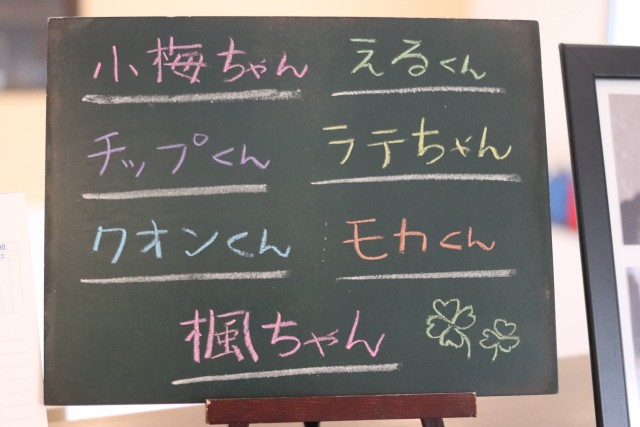 小梅ちゃん えるくん
チップくん ラテちゃん
クオンくん モカくん
楓ちゃん